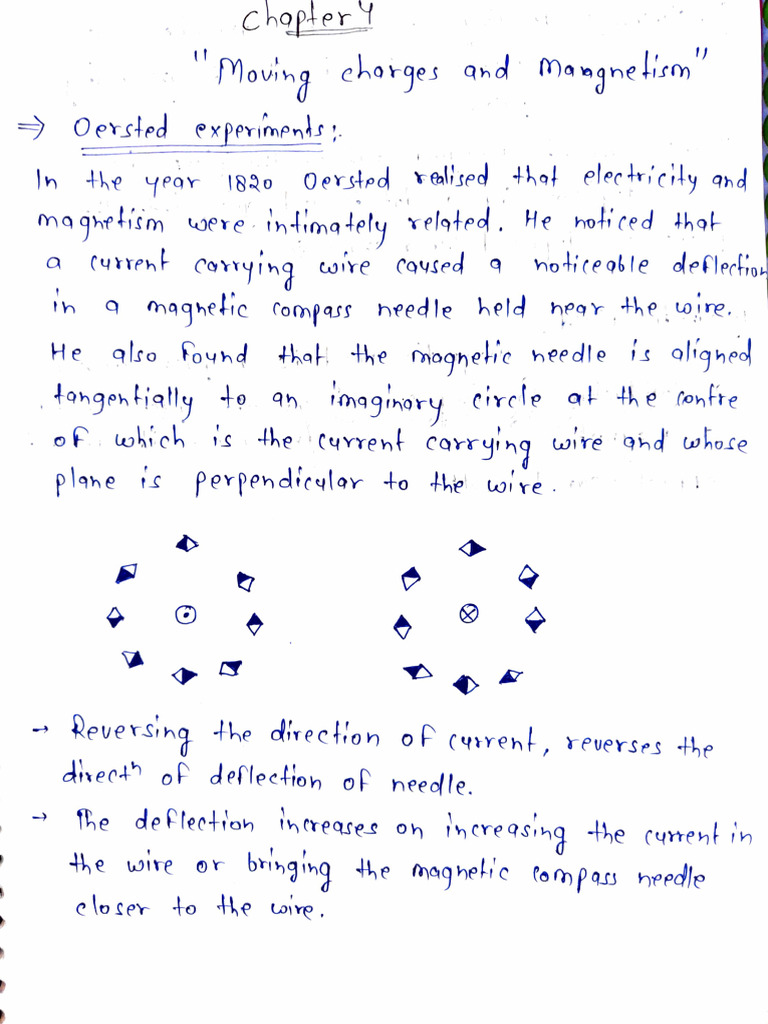 Chapter 4
"Moving charges and Mangnetism"
⇒ Oersted experiments:.
In the year 1820 Oersted realised that electricity and
magnetism were intimately related. He noticed that
a current carrying wire caused a noticeable deflection
in a magnetic compass needle held near the wire.
He also found that the magnetic needle is aligned
tangentially to an imaginary circle at the contre
of which is the current carrying wire and whose
plane is perpendicular to the wire.
→ Reversing the direction of current, reverses the
directⁿ of deflection of needle.
→ The deflection increases on increasing the current in
the wire or bringing the magnetic compass needle
closer to the wire.